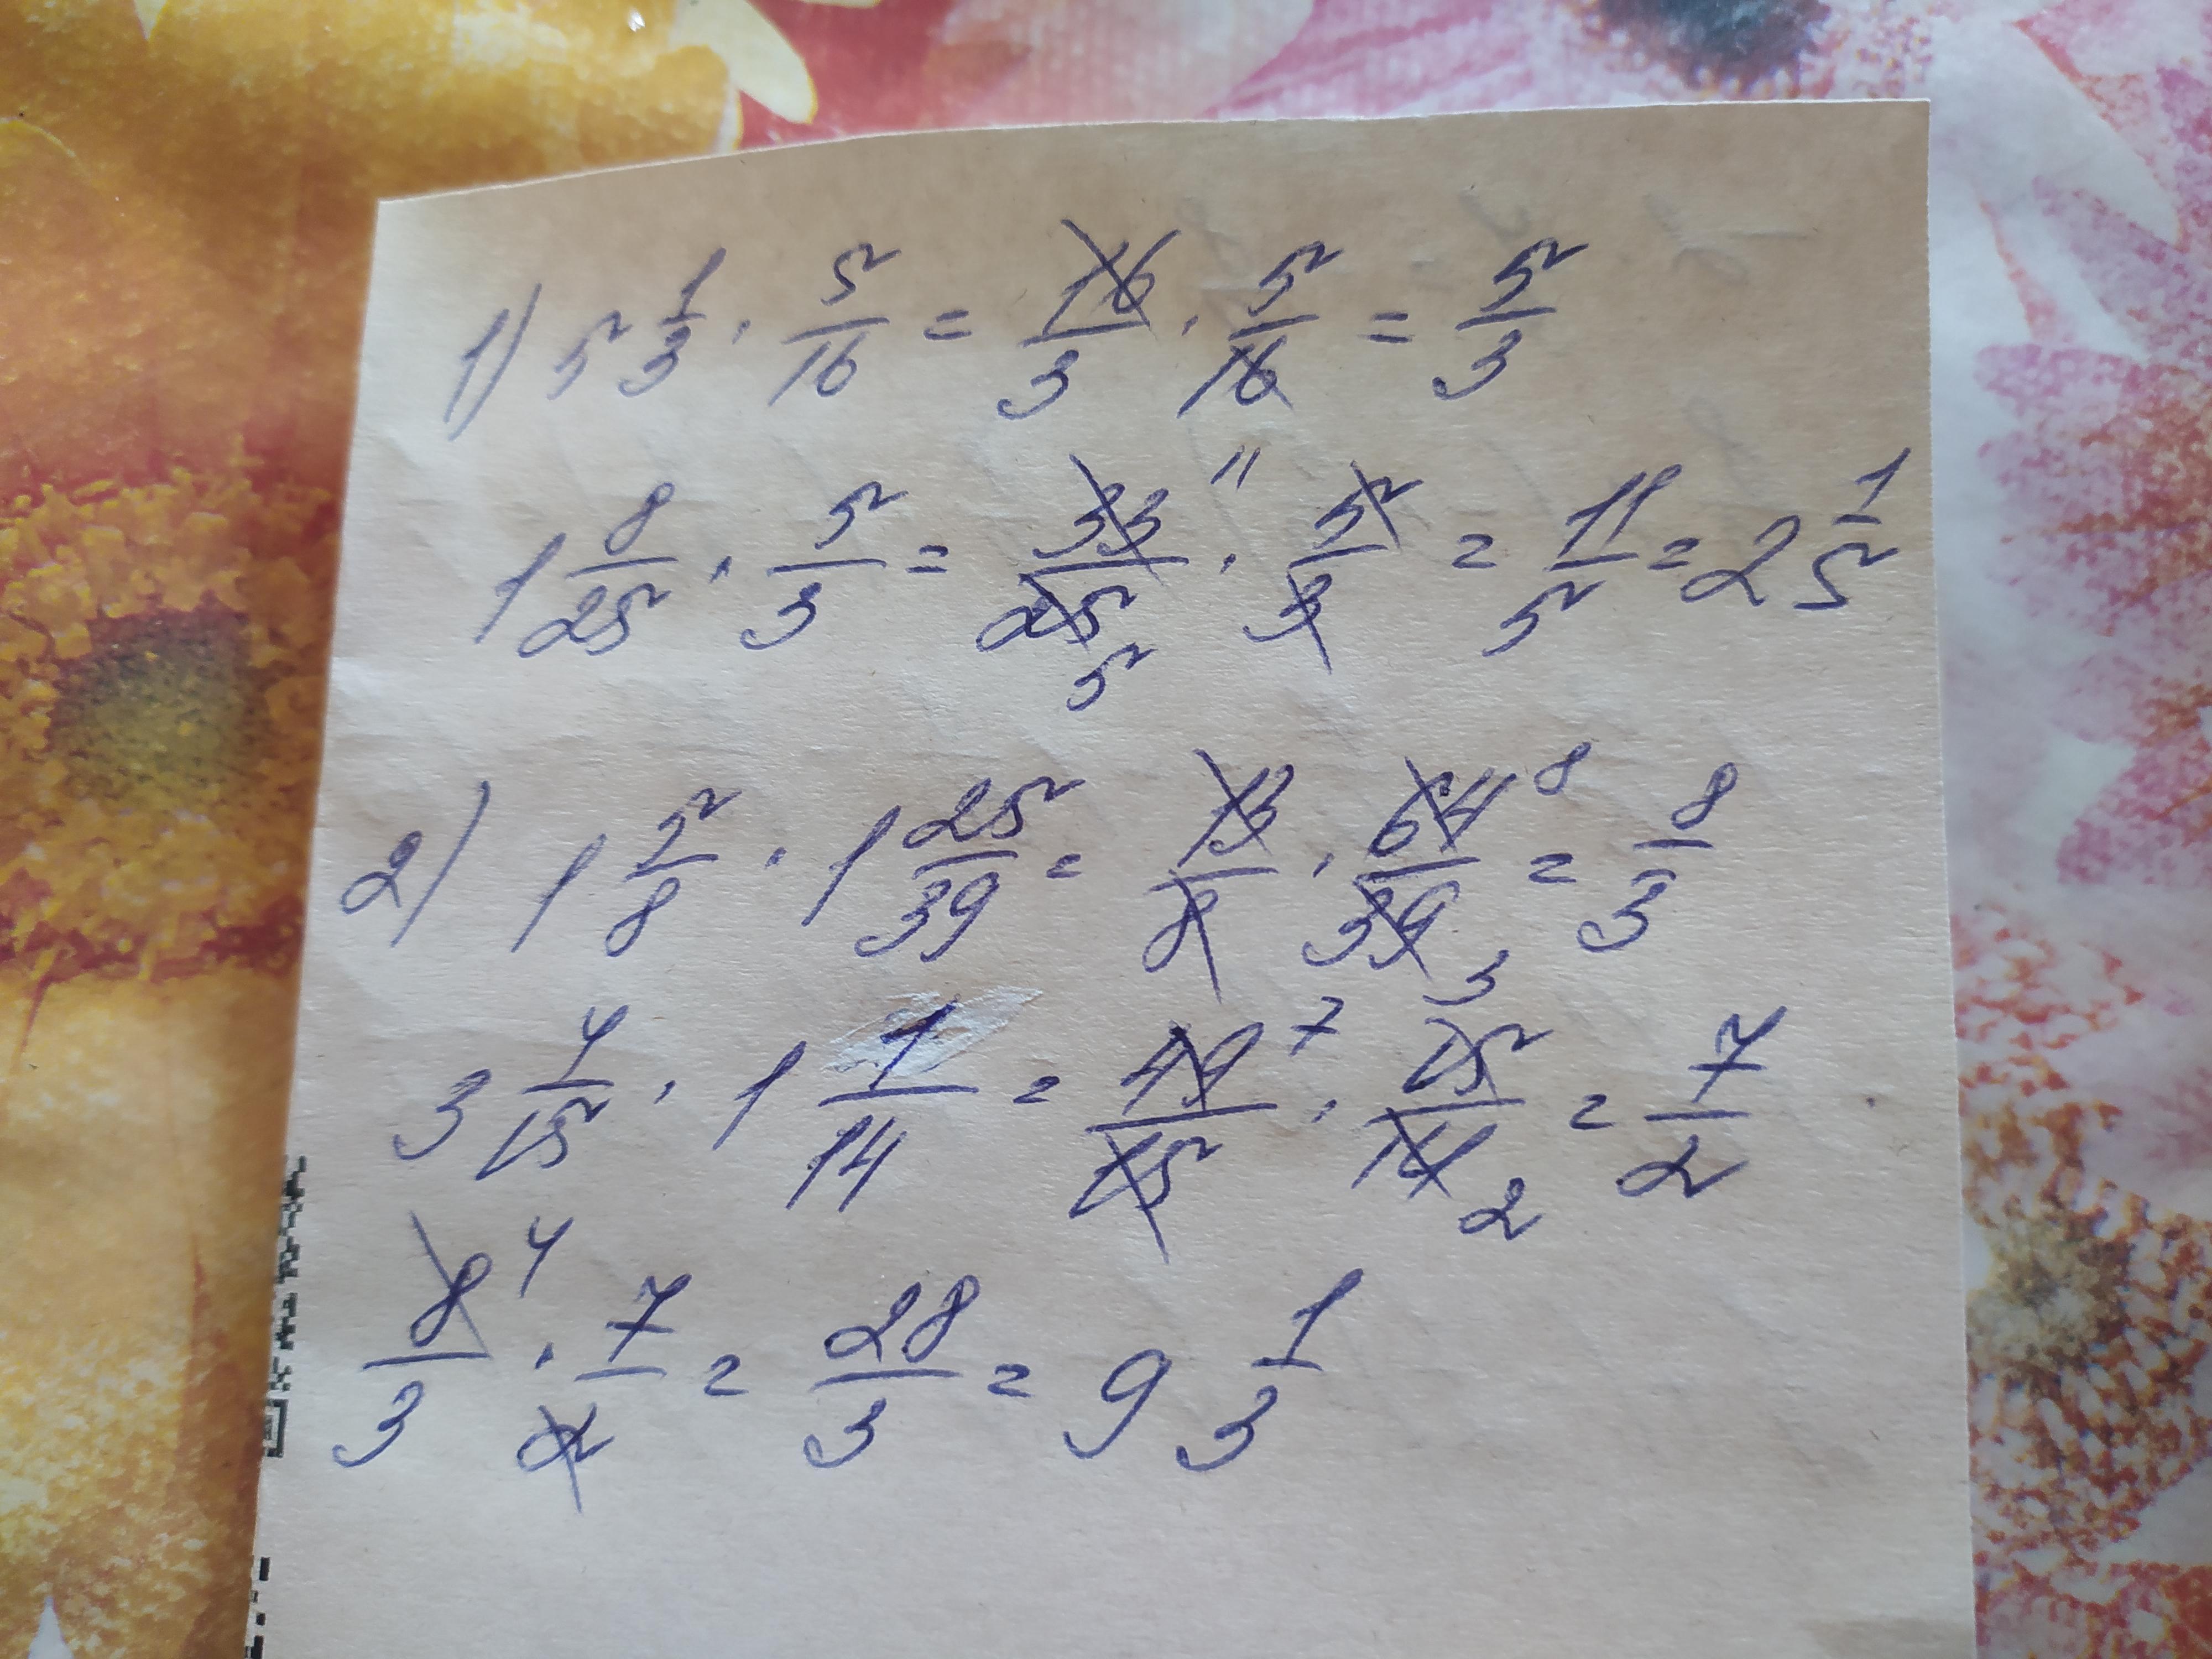 1) 5 1/3 · 5/16 = 16/3 · 5/16 = 5/3
1 8/25 · 5/3 = 33/25 11 5 · 5/3 = 11/5 = 2 1/5
2) 1 5/8 · 1 25/39 = 13/8 · 64/39 8 3 = 8/3
3 4/15 · 1 1/14 = 49/15 7 · 15/14 2 = 7/2
8/3 4 · 7/2 = 28/3 = 9 1/3